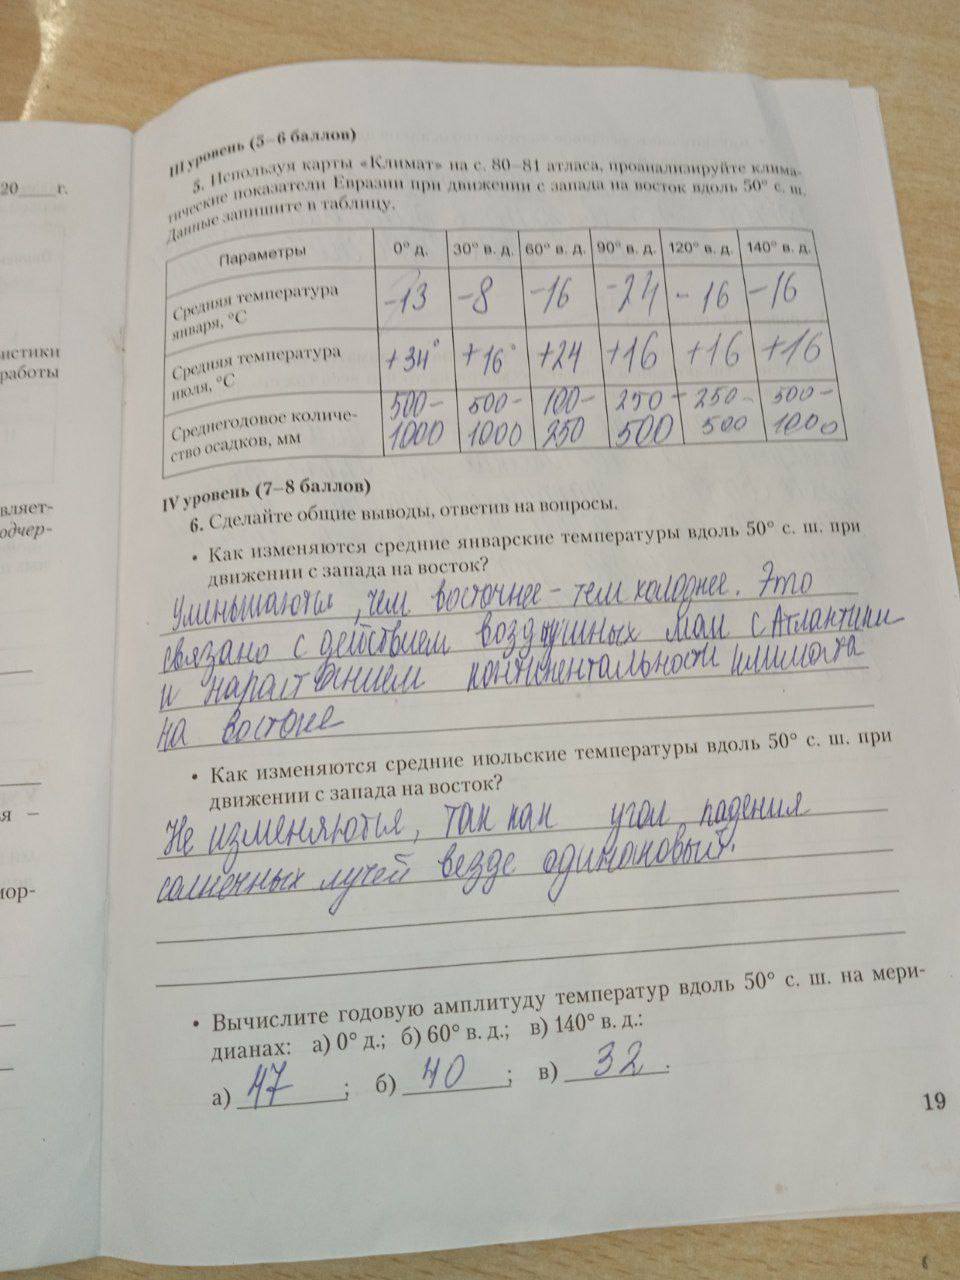 20____ г.
истики
работы
вляет-
одчер-
я –
мор-
III уровень (5–6 баллов)
5. Используя карты «Климат» на с. 80–81 атласа, проанализируйте клима-
тические показатели Евразии при движении с запада на восток вдоль 50° с. ш.
Данные запишите в таблицу.
Параметры 0° д. 30° в. д. 60° в. д. 90° в. д. 120° в. д. 140° в. д.
Средняя температура
января, °С -13 -8 -16 -24 -16 -16
Средняя температура
июля, °С +34° +16° +24 +16 +16 +16
Среднегодовое количе-
ство осадков, мм 500-1000 500-1000 100-250 250-500 250-500 500-1000
IV уровень (7–8 баллов)
6. Сделайте общие выводы, ответив на вопросы.
• Как изменяются средние январские температуры вдоль 50° с. ш. при
движении с запада на восток?
Уменьшаются, чем восточнее - тем холоднее. Это
связано с действием воздушных мас с Атлантики
и нарастанием континентальности климата
на востоке
• Как изменяются средние июльские температуры вдоль 50° с. ш. при
движении с запада на восток?
Не изменяются, так как угол падения
солнечных лучей везде одинаковый.
• Вычислите годовую амплитуду температур вдоль 50° с. ш. на мери-
дианах: а) 0° д.; б) 60° в. д.; в) 140° в. д.:
а) 47 ; б) 40 ; в) 32 .
19